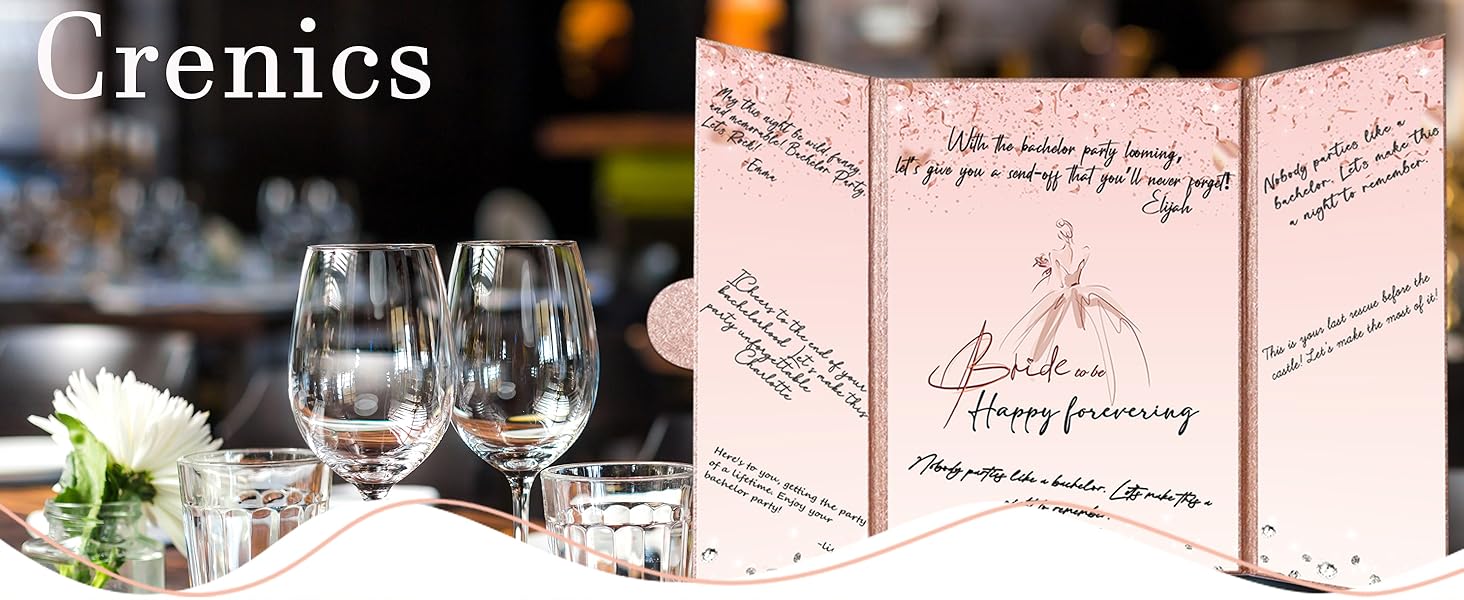 Crenics
May this night be wild funny,
and memorable! Bachelor Party,
Let's Rock!
-Emma
Cheers to the end of your
bachelorhood. Let's make this
party unforgettable
Charlotte
Here's to you, getting the party
of a lifetime. Enjoy your
bachelor party!
With the bachelor party looming,
let's give you a send-off that you'll never forget!
Elijah
Bride to be
Happy forevering
Nobody parties like a bachelor. Let's make this a
remember.
Nobody parties like a
bachelor. Let's make this
a night to remember.
This is your last rescue before the
castle! Let's make the most of it!